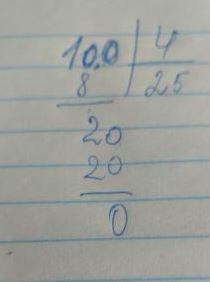 10.0 4
8 25
20
20
0